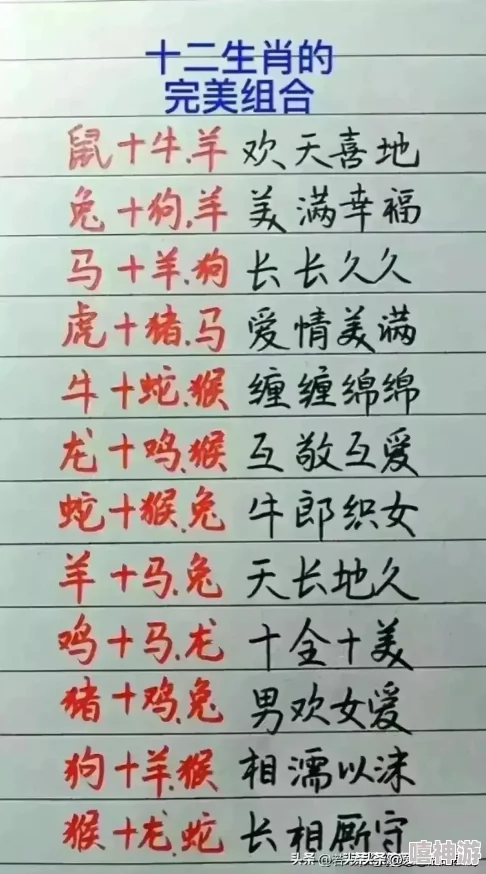 十二生肖的
完美组合
鼠十牛.羊 欢天喜地
兔十狗.羊 美满幸福
马十羊.狗 长长久久
虎十猪.马 爱情美满
牛十蛇.猴 缠缠绵绵
龙十鸡.猴 互敬互爱
蛇十猴.兔 牛郎织女
羊十马.兔 天长地久
鸡十马.龙 十全十美
猪十鸡.兔 男欢女爱
狗十羊.猴 相濡以沫
猴十龙.蛇 长相厮守
嘻神游